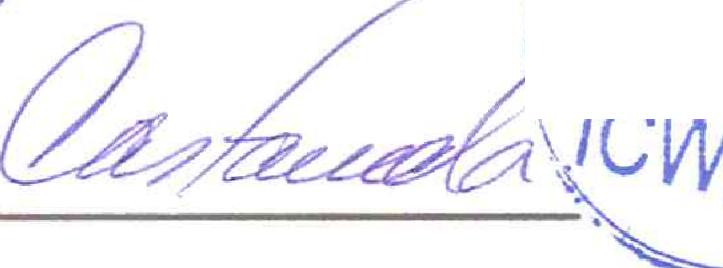 Castaneda
ICW